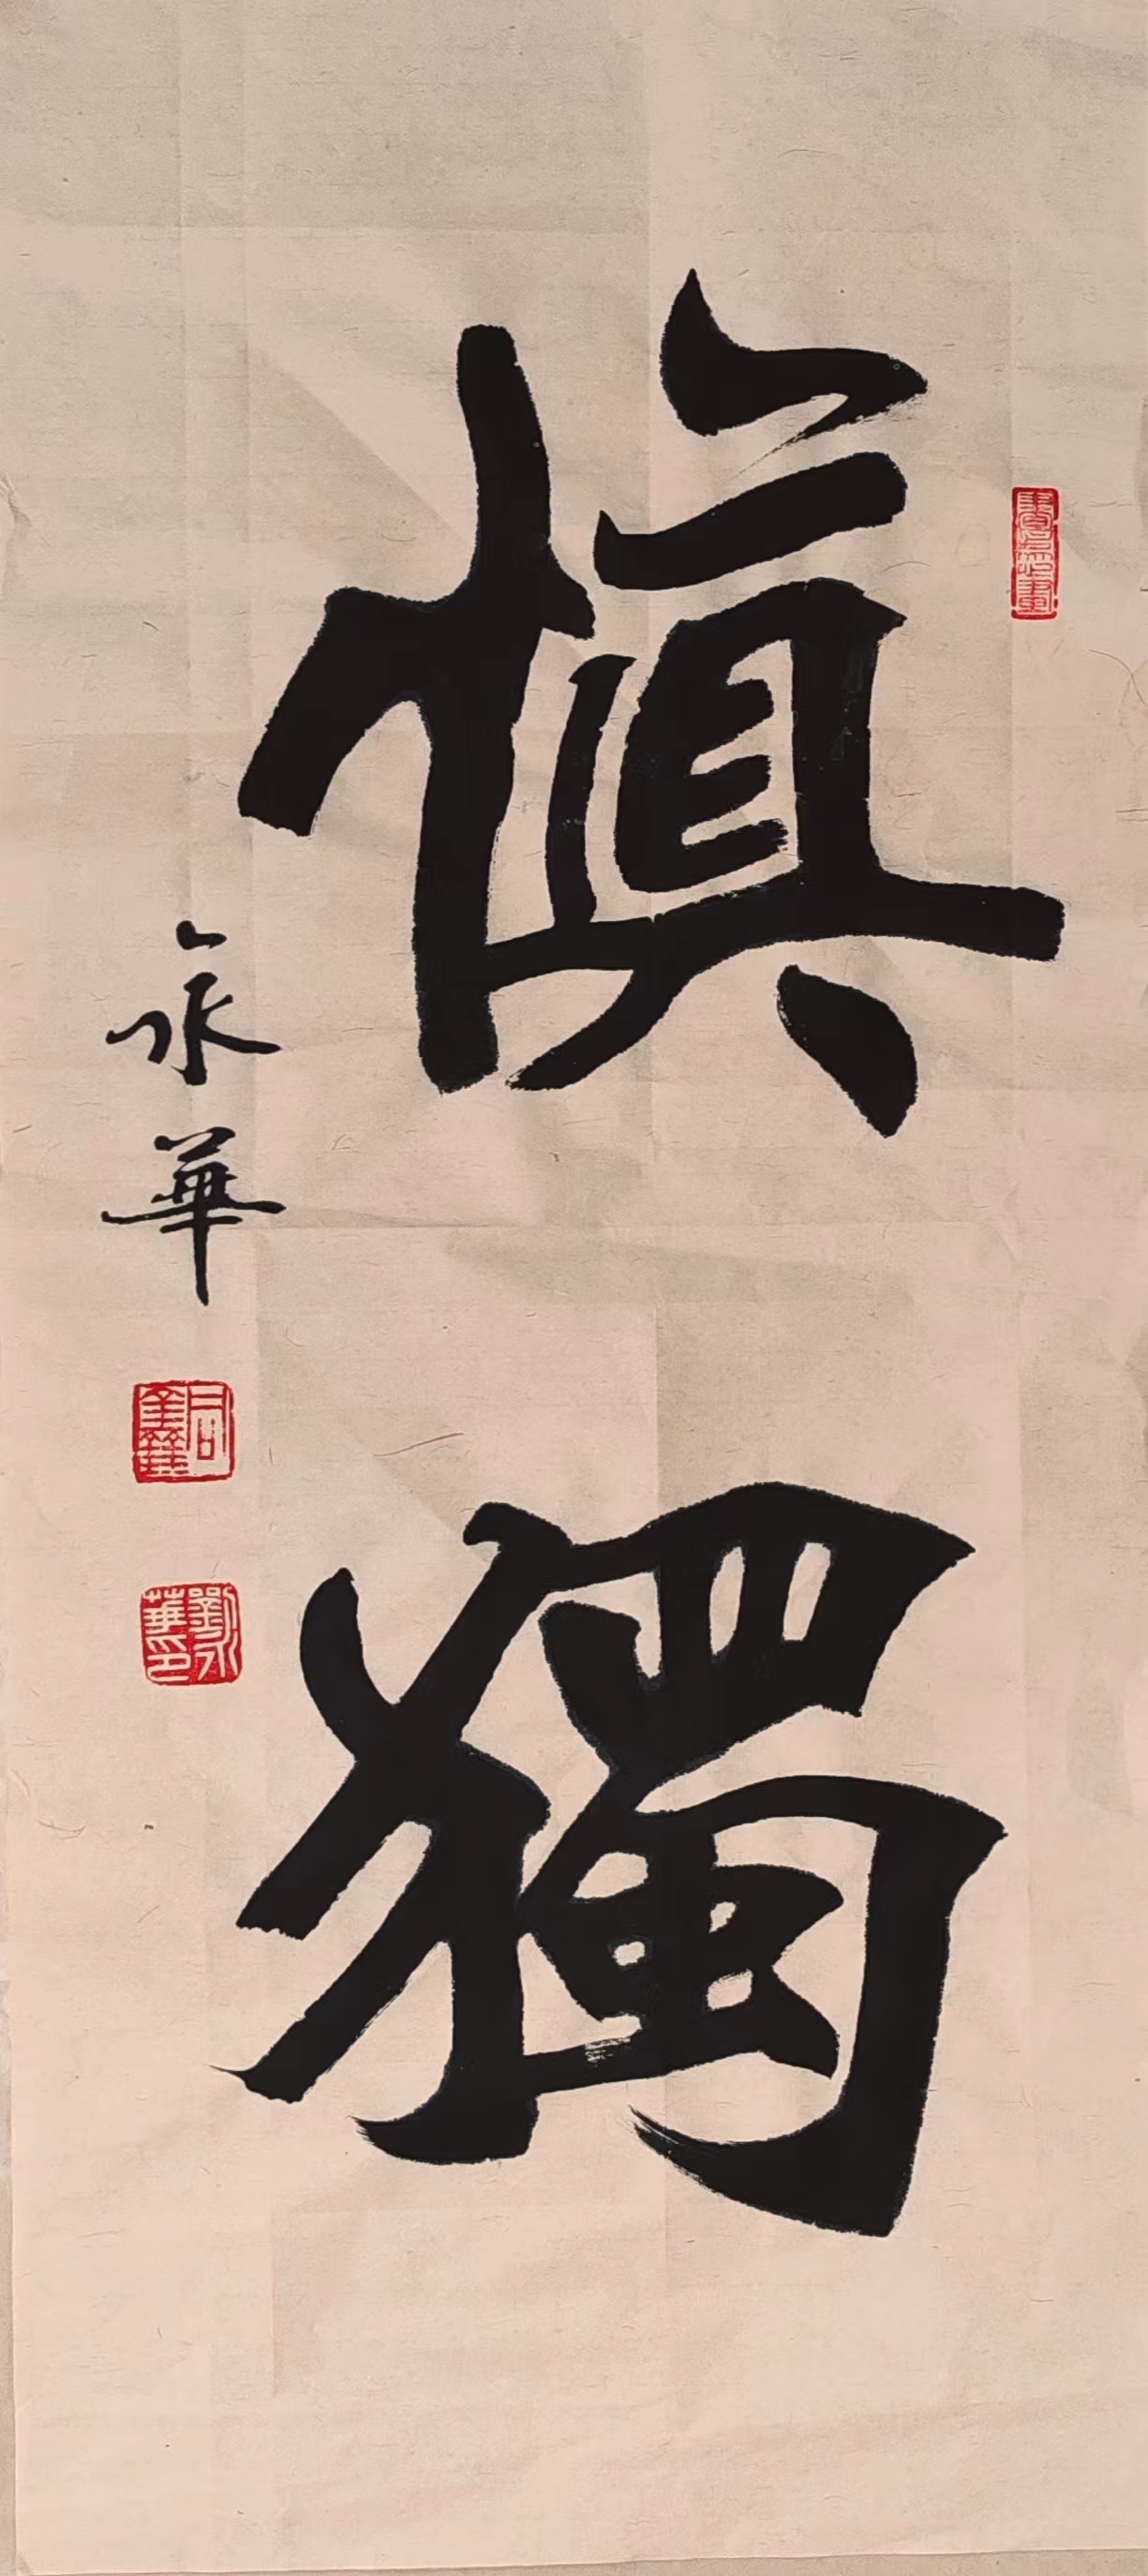 慎獨
永華
劉永華印